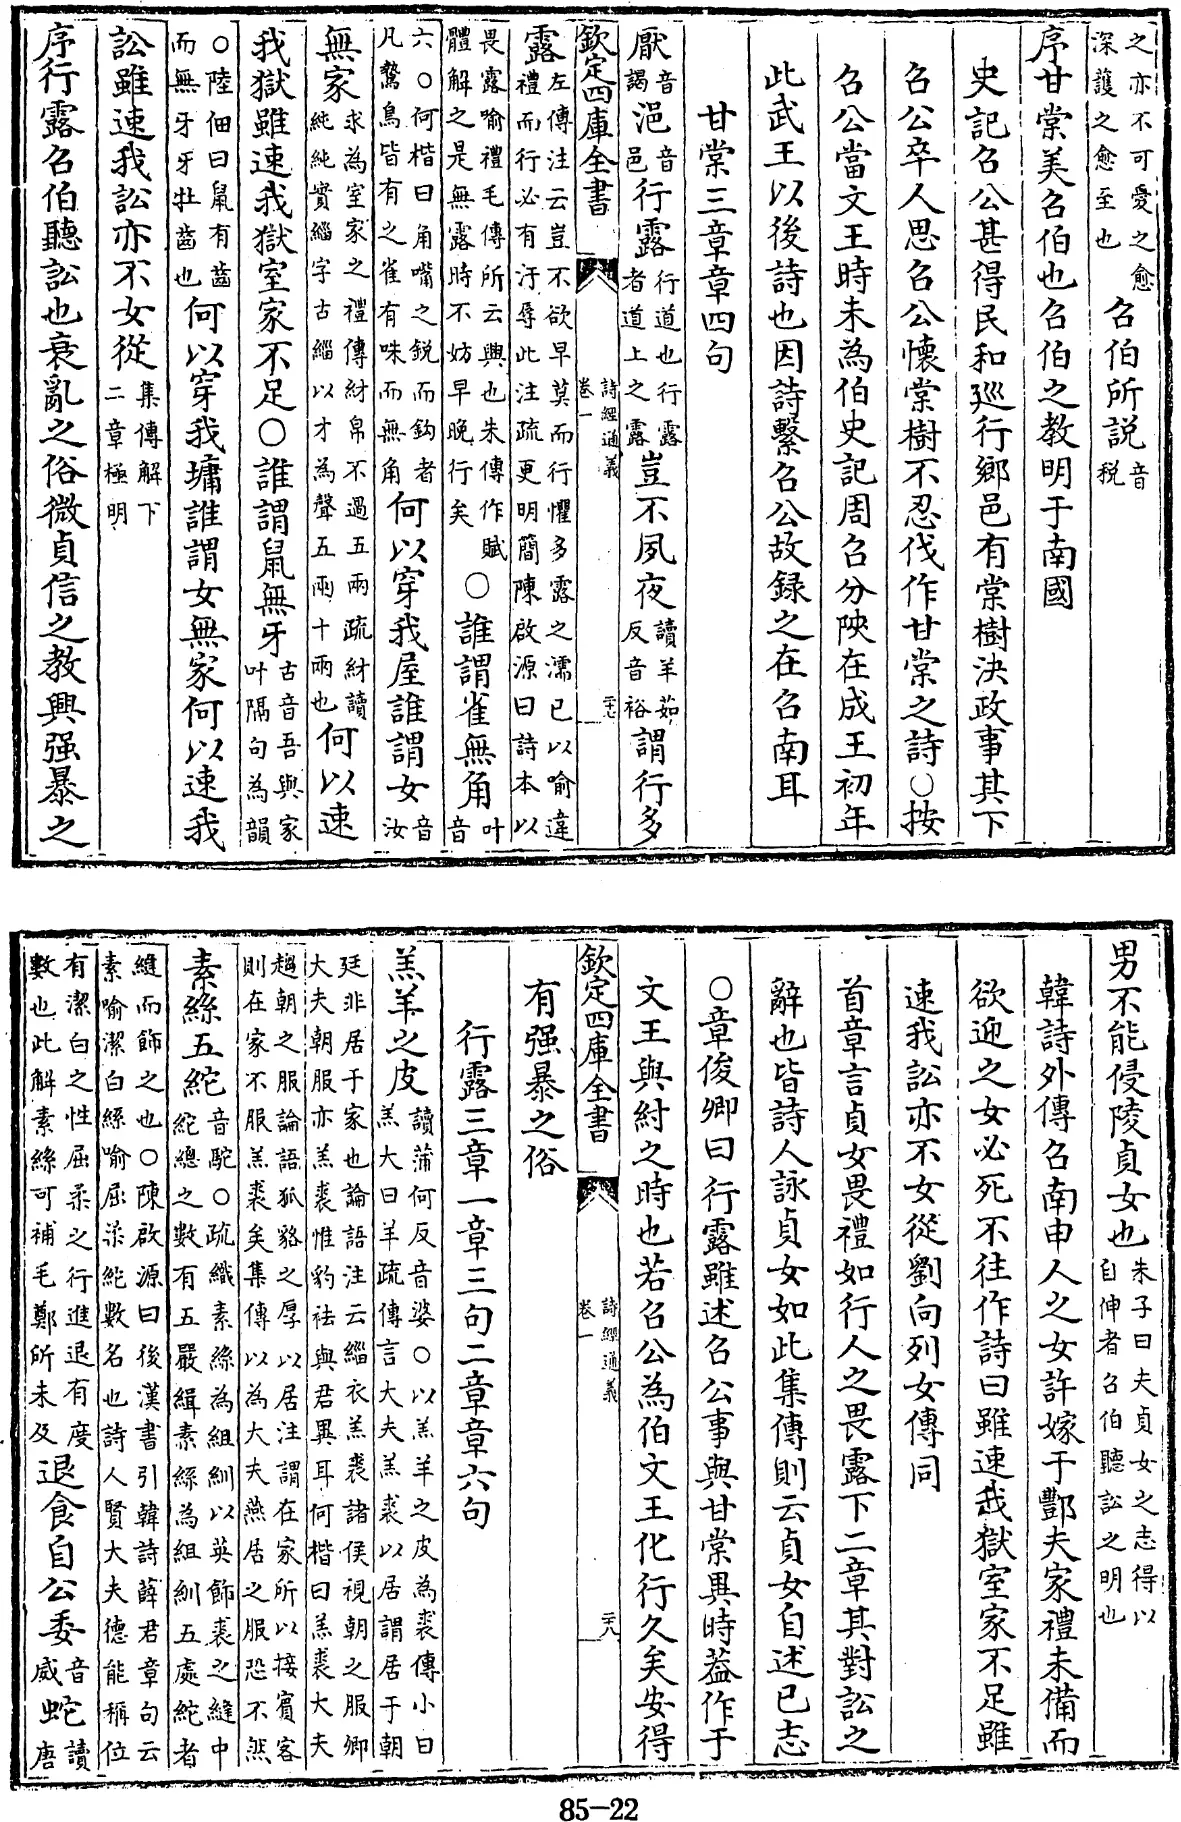 之亦不可愛之愈
深護之愈至也
召伯所説音
税
序甘棠美召伯也召伯之教明于南國
史記召公甚得民和巡行鄉邑有棠樹決政事其下
召公卒人思召公懐棠樹不忍伐作甘棠之詩○按
召公當文王時未為伯史記周召分陝在成王初年
此武王以後詩也因詩繫召公故録之在召南耳
甘棠三章章四句
厭音
謁浥音
邑行露行道也行露
者道上之露豈不夙夜讀羊茹
反音裕謂行多
欽定四庫全書
詩經通義
卷一
二十七
露左傳注云豈不欲早莫而行懼多露之濡已以喻違
禮而行必有汙辱此注疏更明簡陳啟源曰詩本以
畏露喻禮毛傳所云興也朱傳作賦
體解之是無露時不妨早晚行矣○誰謂雀無角叶
音
六○何楷曰角嘴之銳而鈎者
凡鷙鳥皆有之雀有咮而無角何以穿我屋誰謂女音
汝
無家求為室家之禮傳紂帛不過五兩疏紂讀
純純實緇字古緇以才為聲五兩十兩也何以速
我獄雖速我獄室家不足○誰謂鼠無牙古音吾與家
叶隔句為韻
○陸佃曰鼠有齒
而無牙牙牡齒也何以穿我墉誰謂女無家何以速我
訟雖速我訟亦不女從集傳解下
二章極明
序行露召伯聽訟也衰亂之俗微貞信之教興强暴之
男不能侵陵貞女也朱子曰夫貞女之志得以
自伸者召伯聽訟之明也
韓詩外傳召南申人之女許嫁于酆夫家禮未備而
欲迎之女必死不往作詩曰雖速我獄室家不足雖
速我訟亦不女從劉向列女傳同
首章言貞女畏禮如行人之畏露下二章其對訟之
辭也皆詩人詠貞女如此集傳則云貞女自述已志
○章俊卿曰行露雖述召公事與甘棠異時葢作于
文王與紂之時也若召公為伯文王化行久矣安得
欽定四庫全書
詩經通義
卷一
二十八
有强暴之俗
行露三章一章三句二章章六句
羔羊之皮讀蒲何反音婆○以羔羊之皮為裘傳小曰
羔大曰羊疏傳言大夫羔裘以居謂居于朝
廷非居于家也論語注云緇衣羔裘諸侯視朝之服卿
大夫朝服亦羔裘惟豹袪與君異耳何楷曰羔裘大夫
趨朝之服論語狐貉之厚以居注謂在家所以接賓客
則在家不服羔裘矣集傳以為大夫燕居之服恐不然
素絲五紽音駝○疏織素絲為組紃以英飾裘之縫中
紽總之數有五嚴緝素絲為組紃五處紽者
縫而飾之也○陳啟源曰後漢書引韓詩薛君章句云
素喻潔白絲喻屈柔紽數名也詩人賢大夫德能稱位
有潔白之性屈柔之行進退有度
數也此解素絲可補毛鄭所未及退食自公委音
威蛇讀
唐
85-22